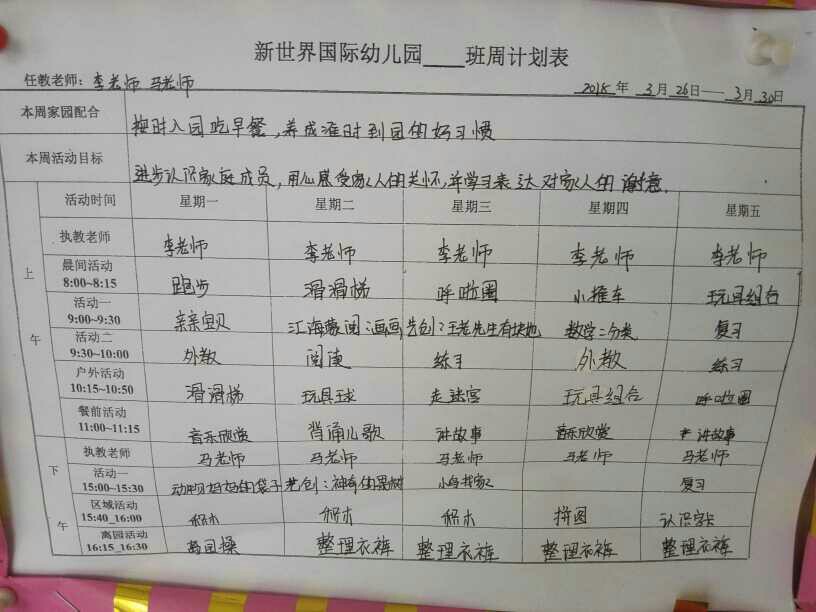 新世界国际幼儿园____班周计划表
任教老师：李老师 马老师 2018年 3月26日——3月30日
本周家园配合 按时入园吃早餐，养成准时到园的好习惯
本周活动目标 进步认识家庭成员，用心感受家人的关怀，并学习表达对家人的谢意.
上午
活动时间 星期一 星期二 星期三 星期四 星期五
执教老师 李老师 李老师 李老师 李老师 李老师
晨间活动 8:00~8:15 跑步 滑滑梯 呼啦圈 小推车 玩具组合
活动一 9:00~9:30 亲亲宝贝 画画 王老先生有块地 数学：分类 复习
活动二 9:30~10:00 外教 阅读 练习 外教 练习
户外活动 10:15~10:50 滑滑梯 玩具球 走迷宫 玩具组合 呼啦圈
餐前活动 11:00~11:15 音乐欣赏 背诵儿歌 讲故事 音乐欣赏 讲故事
下午
执教老师 马老师 马老师 马老师 马老师 马老师
活动一 15:00~15:30 妈妈的袋子 神奇的果树 复习
区域活动 15:40_16:00 积木 积木 积木 拼图 认识字卡
离园活动 16:15_16:30 离园操 整理衣裤 整理衣裤 整理衣裤 整理衣裤